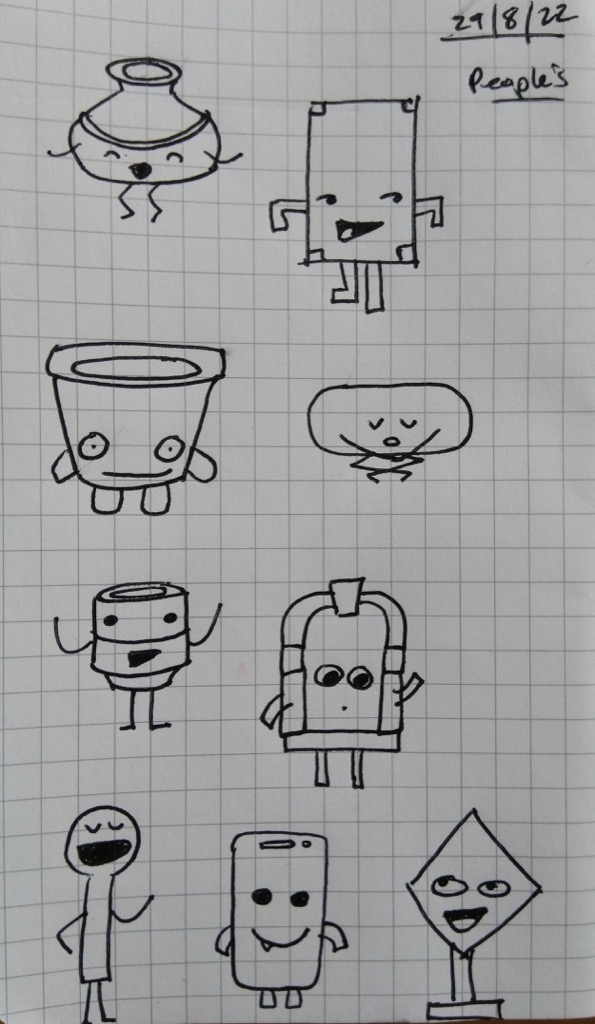 29/8/22
People's